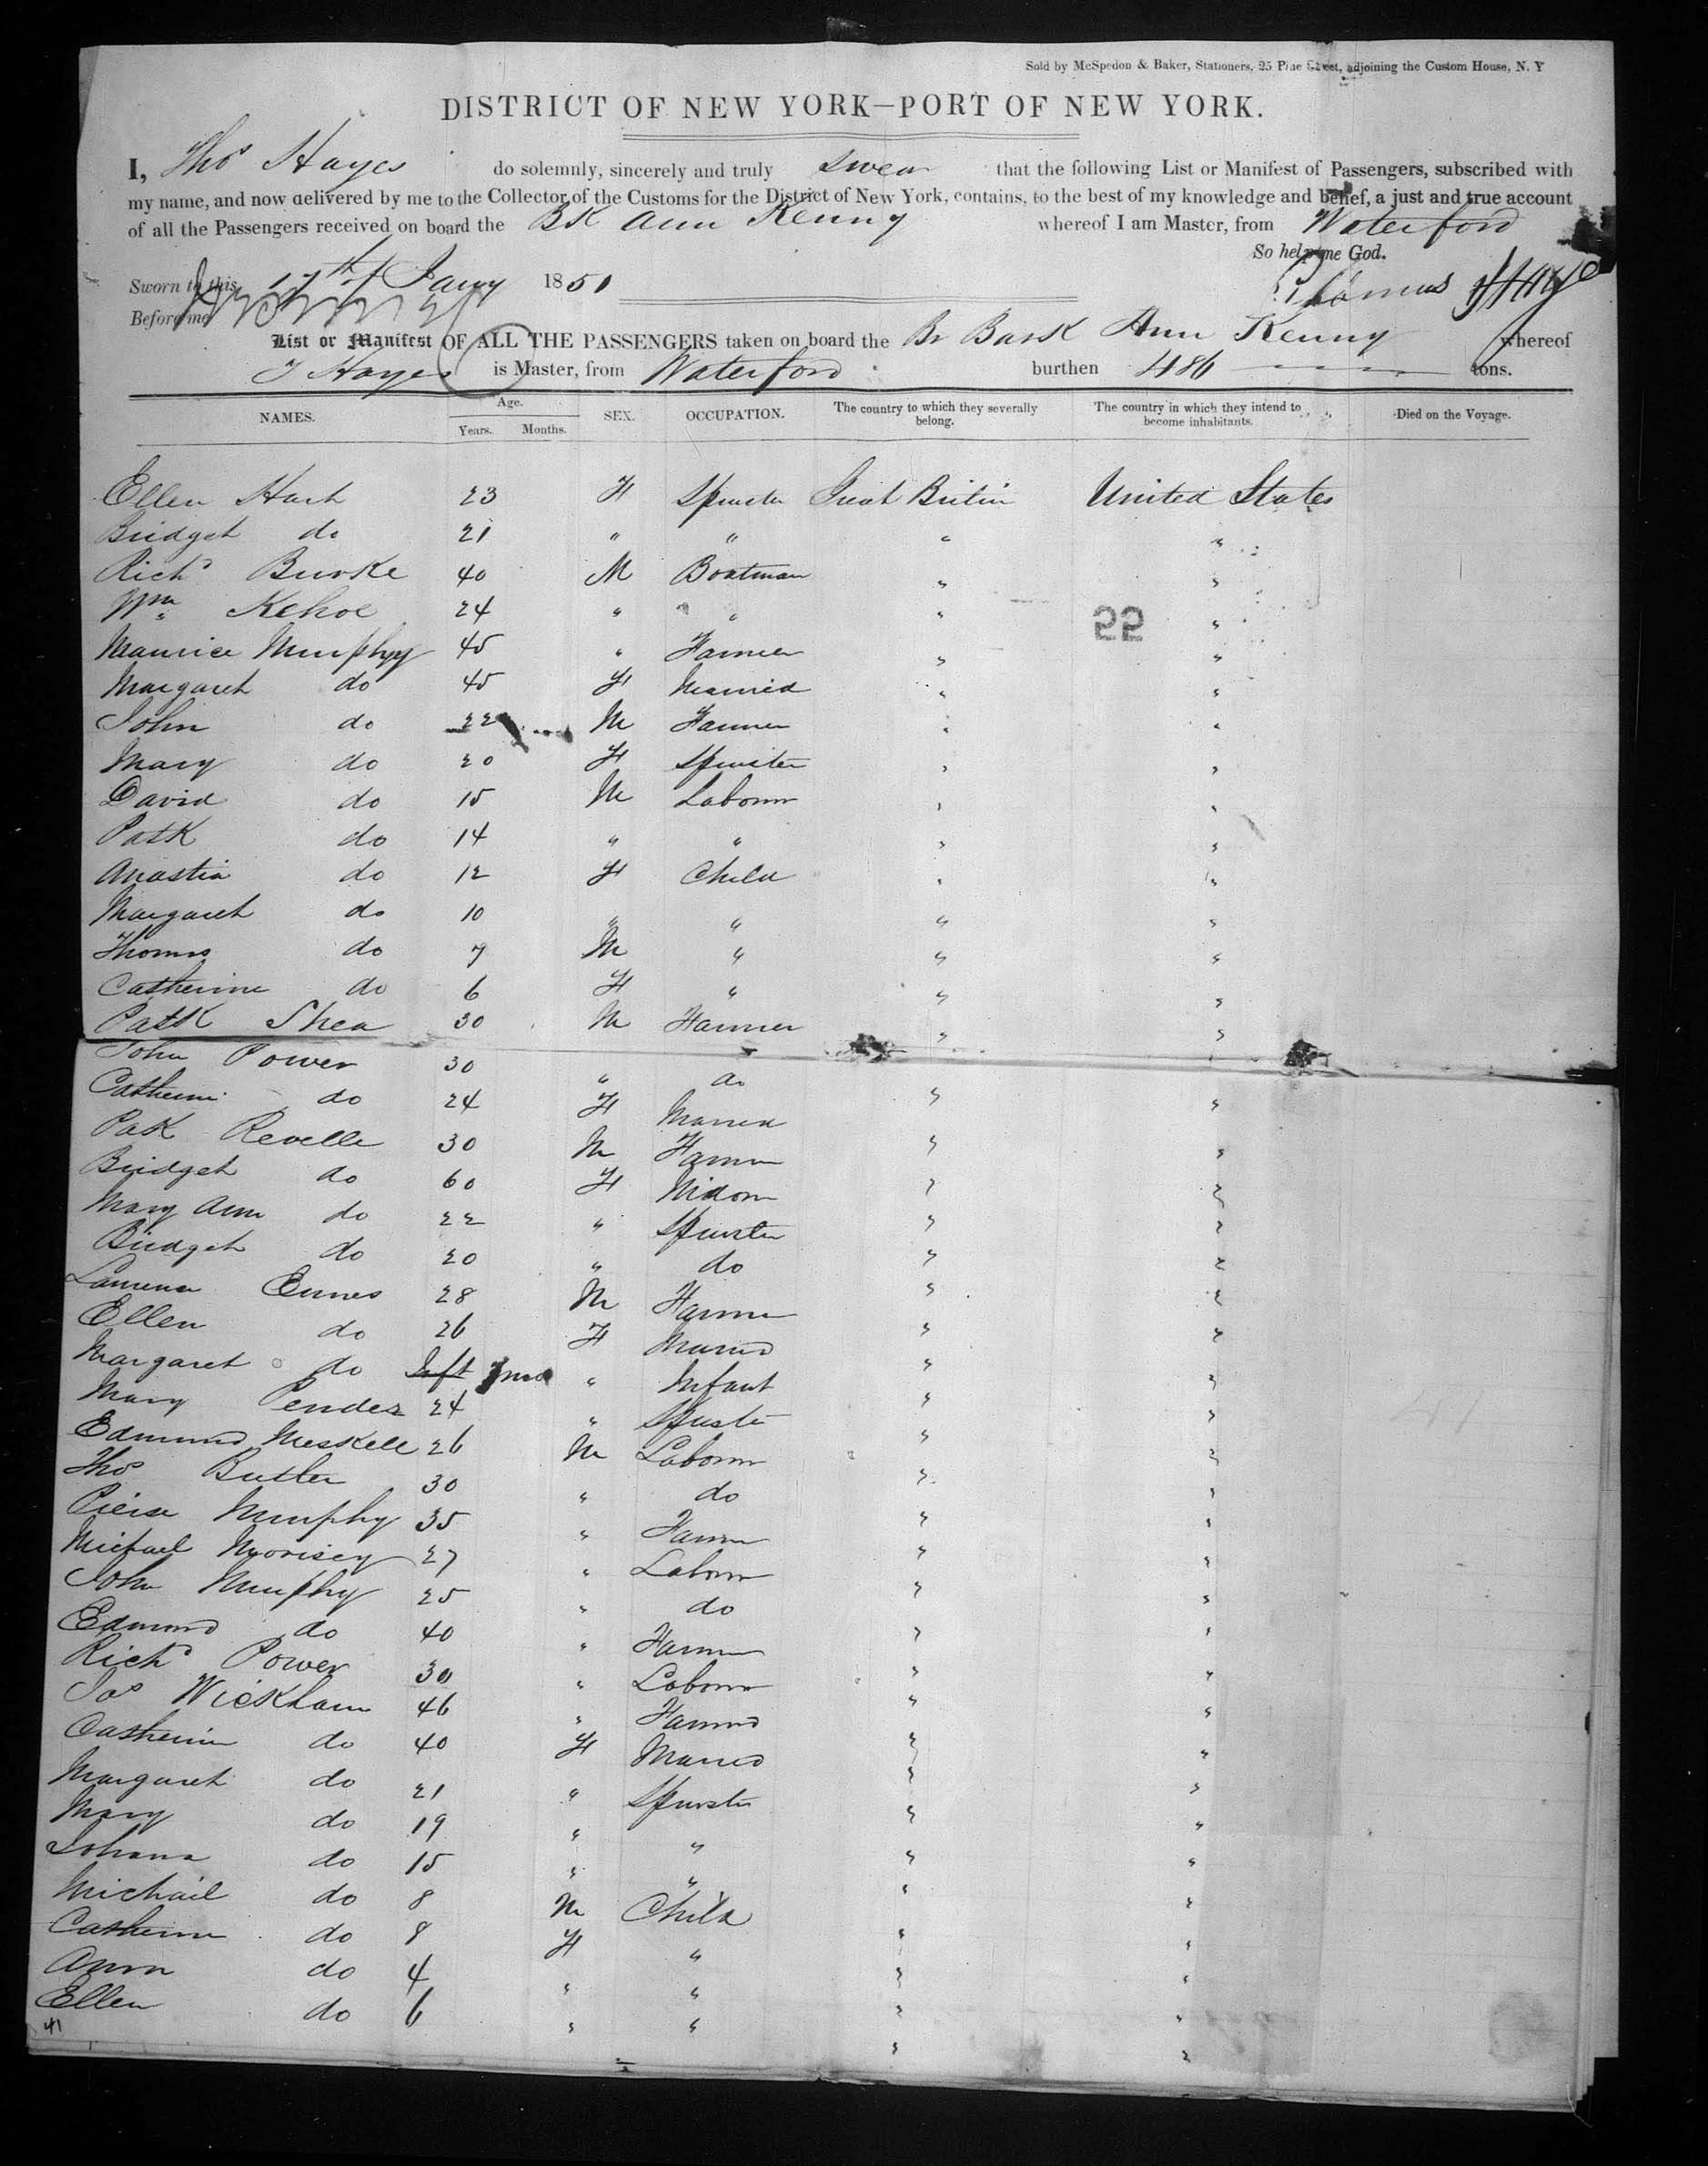 Sold by McSpedon & Baker, Stationers, 25 Pine Street, adjoining the Custom House, N. Y
DISTRICT OF NEW YORK—PORT OF NEW YORK.
I, Thos Hayes do solemnly, sincerely and truly swear that the following List or Manifest of Passengers, subscribed with
my name, and now delivered by me to the Collector of the Customs for the District of New York, contains, to the best of my knowledge and belief, a just and true account
of all the Passengers received on board the Bk Ann Kenny whereof I am Master, from Waterford
So help me God.
Sworn to this 17th of Jany 1851 Thomas Hayes
Before me
List or Manifest OF ALL THE PASSENGERS taken on board the Br Bark Ann Kenny whereof
T Hayes is Master, from Waterford burthen 486 tons.
NAMES. Age. Years. Months. SEX. OCCUPATION. The country to which they severally belong. The country in which they intend to become inhabitants. Died on the Voyage.
Ellen Hart 23 F Spinster Great Britain United States
Bridget do 21 " " " "
Richd Burke 40 M Boatman " "
Wm Kehoe 24 " " " "
22
Maurice Murphy 45 " Farmer " "
Margaret do 45 F Married " "
John do 22 M Farmer " "
Mary do 20 F Spinster " "
David do 15 M Labourer " "
Patk do 14 " " " "
Anastia do 12 F Child " "
Margaret do 10 " " " "
Thomas do 7 M " " "
Catherine do 6 F " " "
Patk Shea 30 M Farmer " "
John Power 30 " do " "
Catherine do 24 F Married " "
Patk Revelle 30 M Farmer " "
Bridget do 60 F Widow " "
Mary Ann do 22 " Spinster " "
Bridget do 20 " do " "
Laurence Ennes 28 M Farmer " "
Ellen do 26 F Married " "
Margaret do Inft 7 mos " Infant " "
Mary Pender 24 " Spinster " "
Edmund Meskell 26 M Labourer " "
Thos Butler 30 " do " "
Pierse Murphy 35 " Farmer " "
Michael Morisey 27 " Labourer " "
John Murphy 25 " do " "
Edmund do 40 " Farmer " "
Richd Power 30 " Labourer " "
Jas Wickham 46 " Farmer " "
Catherine do 40 F Married " "
Margaret do 21 " Spinster " "
Mary do 19 " " " "
Johana do 15 " " " "
Michail do 8 M Child " "
Catherine do 8 F " " "
Anna do 4 " " " "
Ellen do 6 " " " "
41